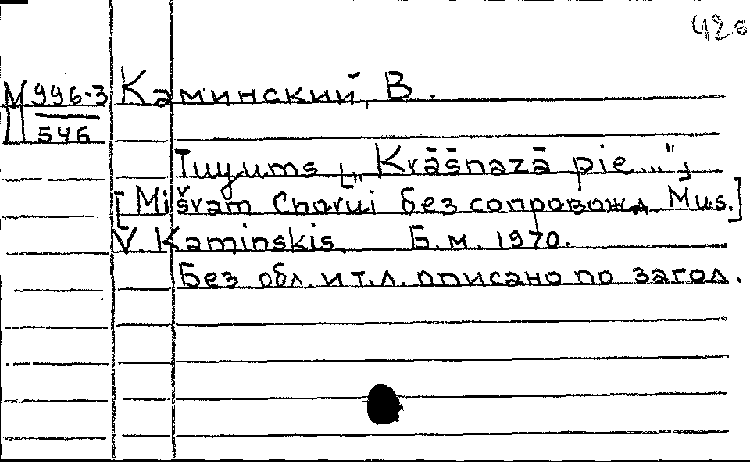 426
М 996-3
546
Каминский, В.
Tuyums [„Krāšnazā pie..."]
[Mišram Chorui без сопровожд. Mus.]
V. Kaminskis. Б.м. 1970.
Без обл. и т.л. описано по загол.